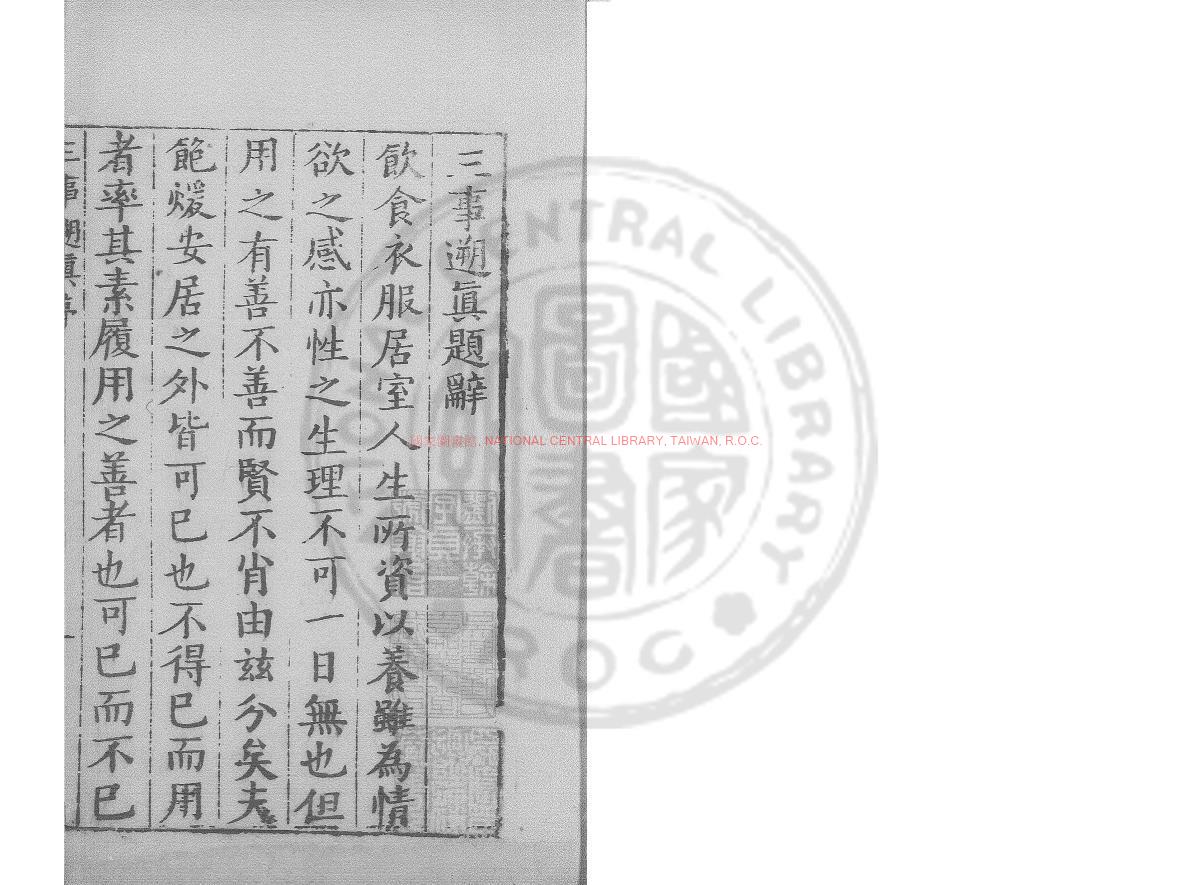 三事遡眞題辭
飲食衣服居室人生所資以養雖為情
欲之感亦性之生理不可一日無也但
用之有善不善而賢不肖由玆分矣夫
飽煖安居之外皆可已也不得已而用
者率其素履用之善者也可已而不已
三事遡眞序
一
CENTRAL LIBRARY
R O C
國家圖書館
國家圖書館, NATIONAL CENTRAL LIBRARY, TAIWAN, R.O.C.